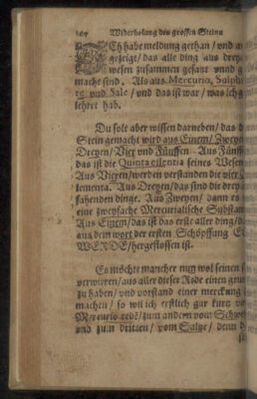 104 Widerholung des grossen Steins
ICh habe meldung gethan / und
gezeiget / das alle ding aus drey
wesen zusammen gesatzt vnnd
macht sind. Als aus Mercurio, Sulph
re und Sale / und das ist war / was ich g
lehret hab.
Du solt aber wissen darneben / das d
Stein gemacht wird aus Einem / Zweyen
Dreyen / Vier und Fünffen. Aus Fünff
das ist die Quinta essentia seines Wesen
Aus Vieren / werden verstanden die vier
lementa. Aus Dreyen / das sind die drey
fahenden dinge. Aus Zweyen / dann es
eine zweyfache Mercurialische Substan
Aus Einem / das ist das erste aller ding /
aus dem wort der ersten Schöpffung
WERDE / hergeflossen ist.
Es möchte mancher nun wol seinen
verwirren / aus aller dieser Rede einen gru
zu haben / und vorstand einer merckung
machen / so wil ich erstlich gar kurz vo
Mercurio reden / zum andern vom Schwe
und zum dritten / vom Saltze / denn d